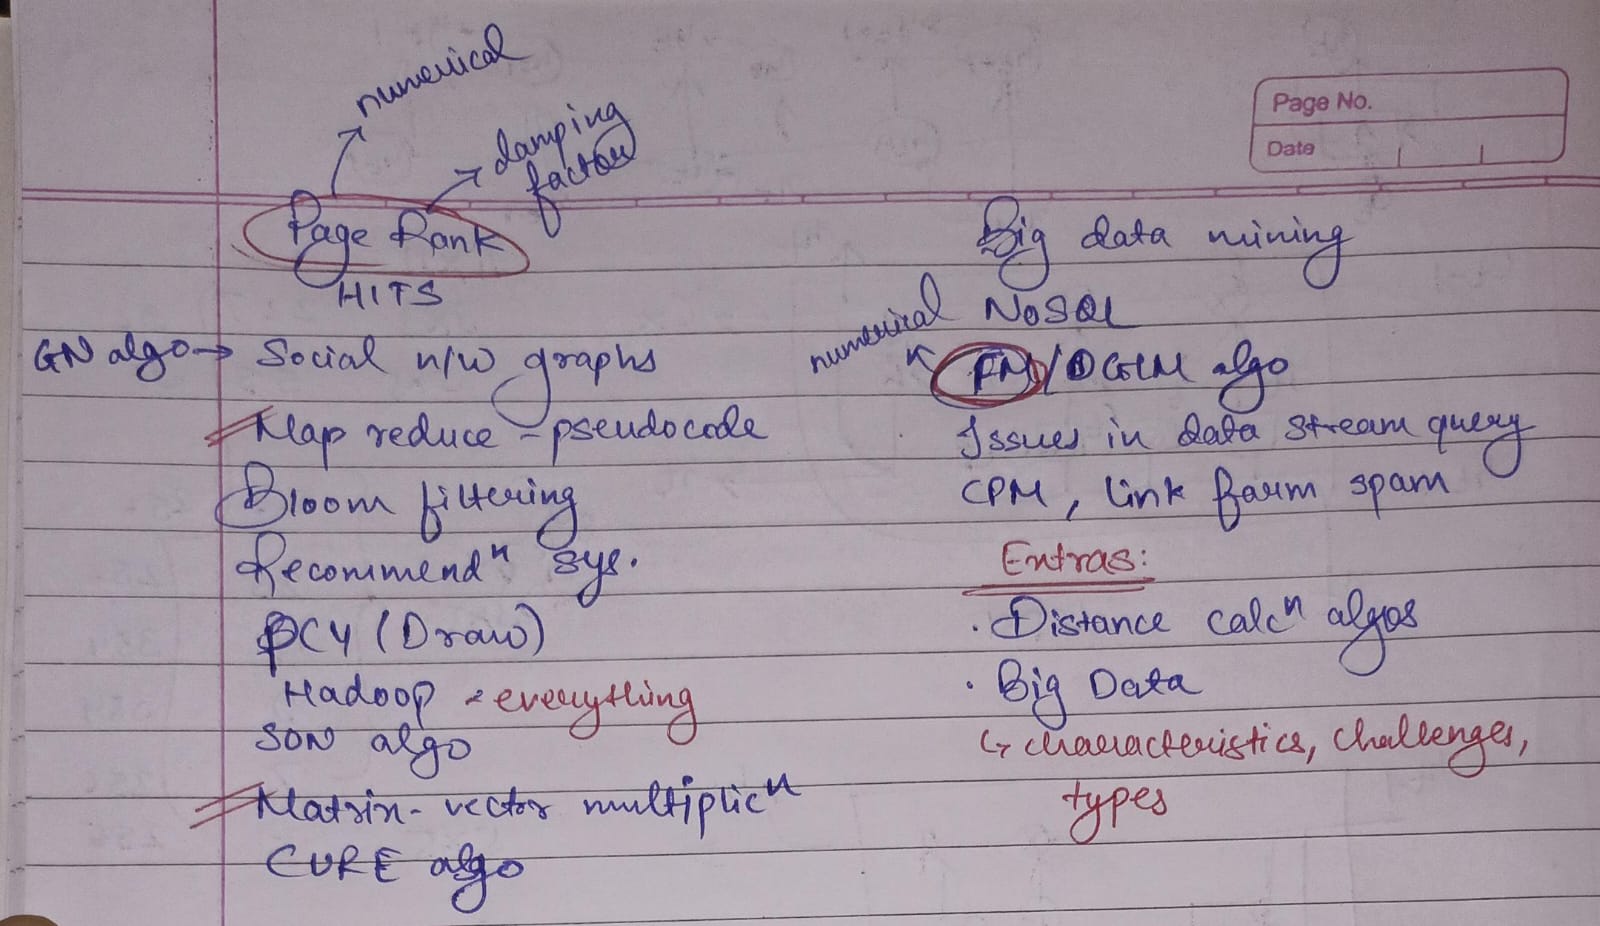 numerical
damping
factor
Page No.
Date
Page Rank
HITS
GN algo → Social n/w graphs
Map reduce - pseudocode
Bloom filtering
Recommendⁿ sys.
PCY (Draw)
Hadoop - everything
SON algo
Matrix-vector multiplicⁿ
CURE algo
Big data mining
NoSQL
numerical
FM/DGIM algo
Issues in data stream query
CPM, link farm spam
Extras:
. Distance calcⁿ algos
. Big Data
↳ characteristics, challenges,
types